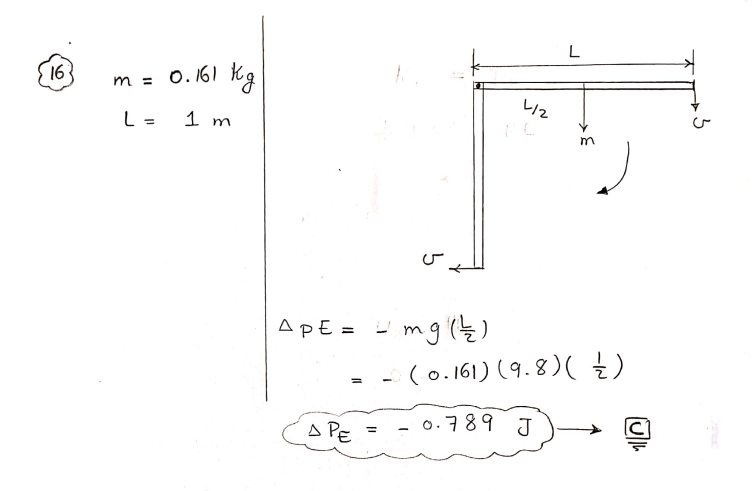 16
m = 0.161 Kg
L = 1 m
L
L/2
m
v
v
Δ PE = - mg (L/2)
= - (0.161) (9.8) ( 1/2 )
Δ PE = - 0.789 J → C